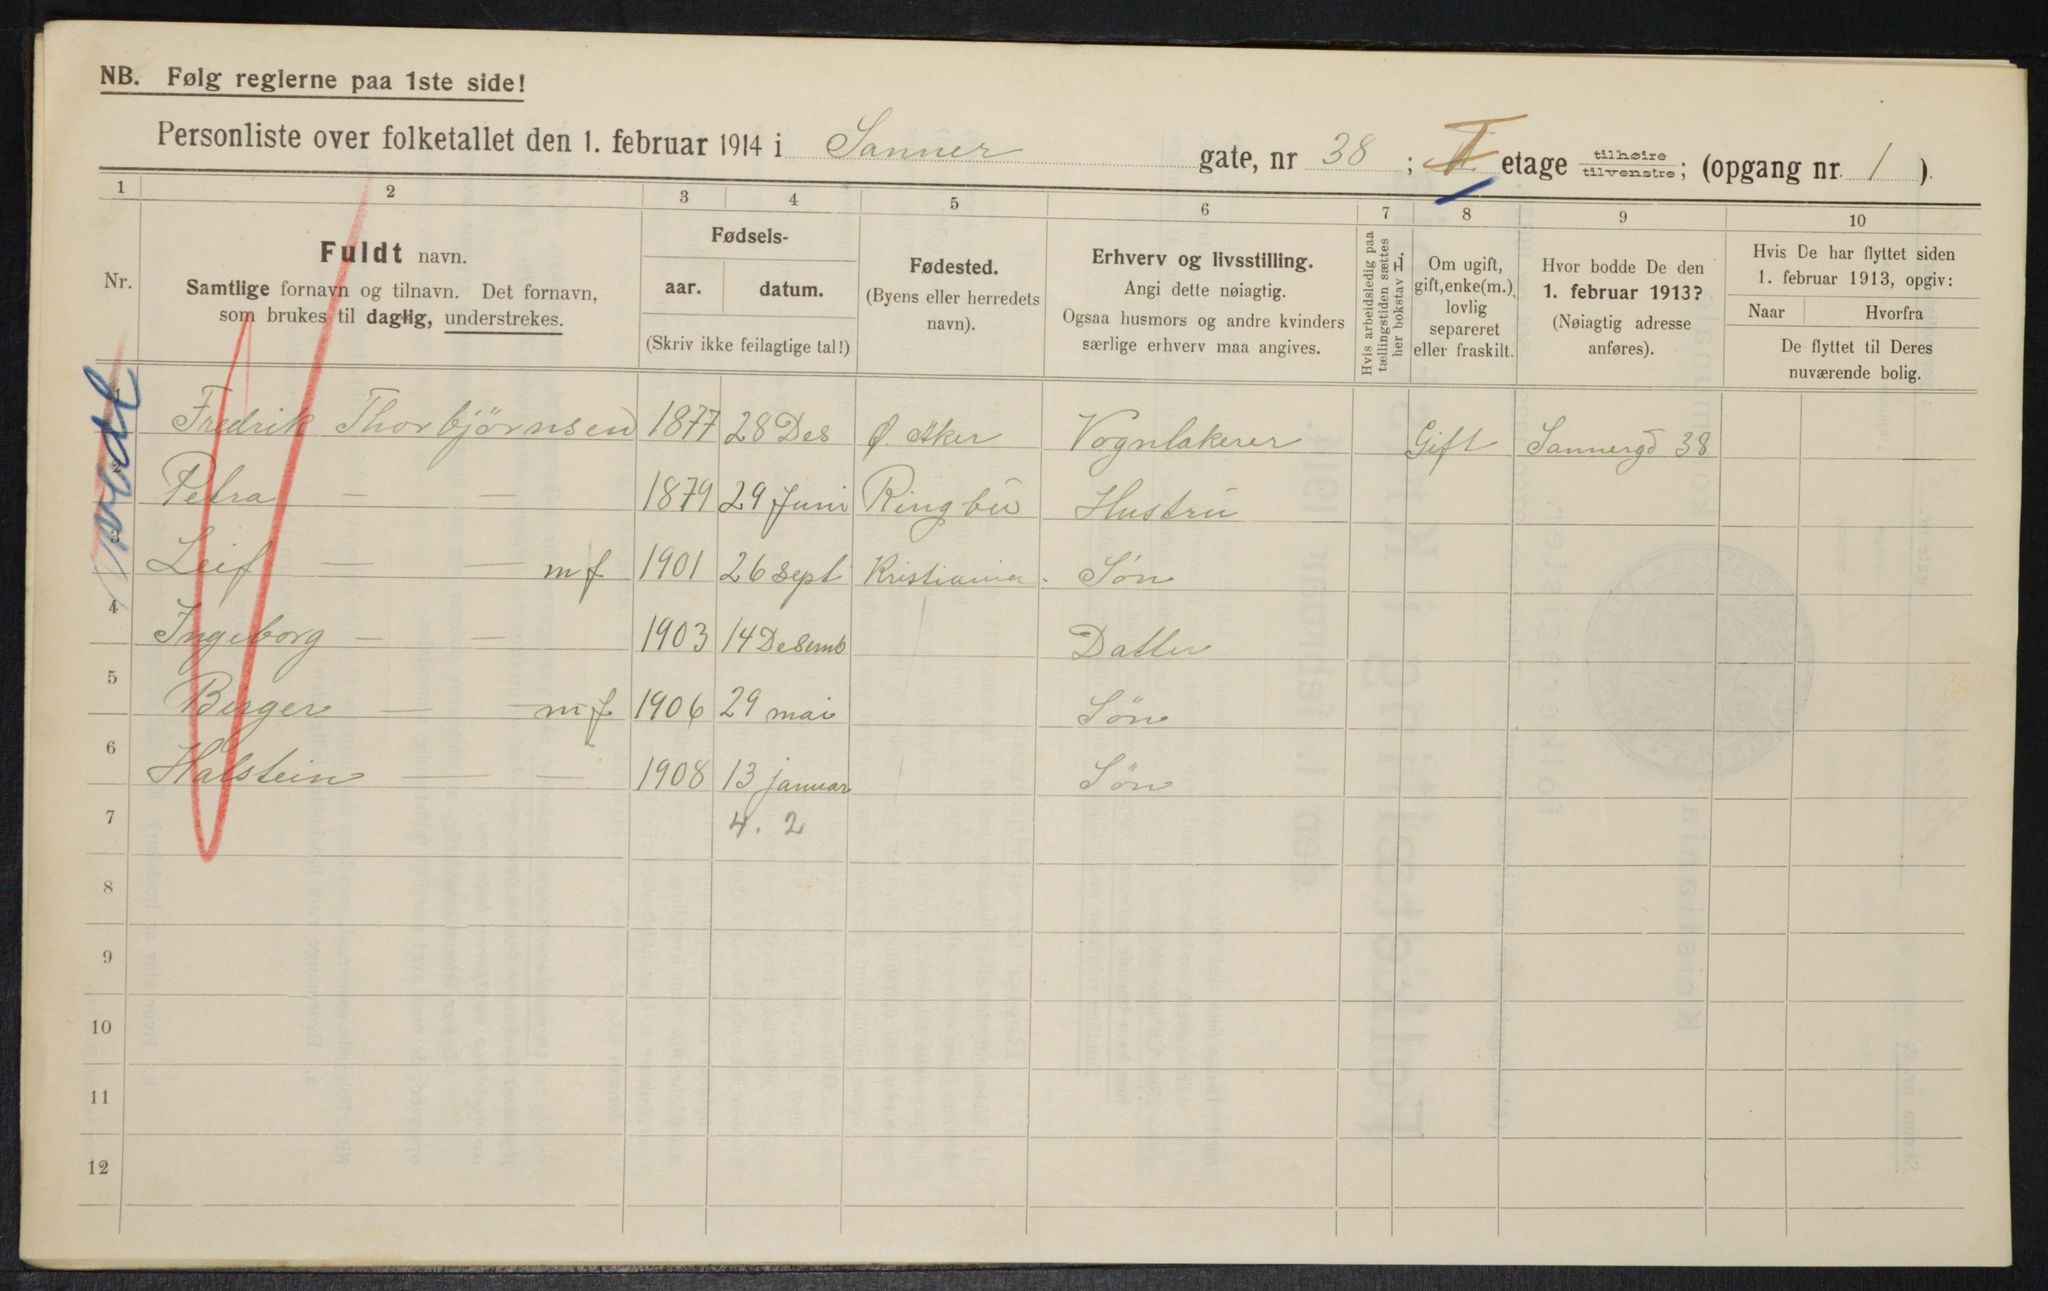 NB. Følg reglerne paa 1ste side!
Personliste over folketallet den 1. februar 1914 i Sanner gate, nr 38 ; II etage tilhøire tilvenstre; (opgang nr. 1 ).
1 2 3 4 5 6 7 8 9 10
Nr.
Fuldt navn.
Samtlige fornavn og tilnavn. Det fornavn,
som brukes til daglig, understrekes.
Fødsels-
aar. datum.
(Skriv ikke feilagtige tal!)
Fødested.
(Byens eller herredets
navn).
Erhverv og livsstilling.
Angi dette nøiagtig.
Ogsaa husmors og andre kvinders
særlige erhverv maa angives.
Hvis arbeidsledig paa
tællingstiden sættes
her bokstav L.
Om ugift,
gift, enke(m.),
lovlig
separeret
eller fraskilt.
Hvor bodde De den
1. februar 1913?
(Nøiagtig adresse
anføres).
Hvis De har flyttet siden
1. februar 1913, opgiv:
Naar Hvorfra
De flyttet til Deres
nuværende bolig.
1 Fredrik Thorbjörnsen 1877 28 Des Ø. Aker Vognlakerer Gift Sannergd 38
2 Petra — — 1879 29 Juni Ringbu Hustru
3 Leif — — mf 1901 26 sept Kristiania Søn
4 Ingeborg — — 1903 14 Desemb Datter
5 Birger — — mf 1906 29 mai Søn
6 Halstein — — 1908 13 januar Søn
7 4. 2
8
9
10
11
12